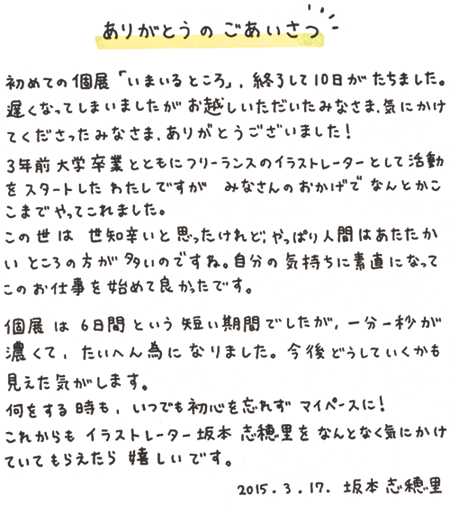 ありがとうのごあいさつ
初めての個展「いまいるところ」、終了して10日がたちました。
遅くなってしまいましたがお越しいただいたみなさま、気にかけ
てくださったみなさま、ありがとうございました！
3年前大学卒業とともにフリーランスのイラストレーターとして活動
をスタートしたわたしですが みなさんのおかげでなんとかこ
こまでやってこれました。
この世は 世知辛いと思ったけれど、やっぱり人間はあたたか
いところの方が多いのですね。自分の気持ちに素直になって
このお仕事を始めて良かったです。
個展は6日間という短い期間でしたが、一分一秒が
濃くて、たいへん為になりました。今後どうしていくかも
見えた気がします。
何をする時も、いつでも初心を忘れずマイペースに！
これからもイラストレーター坂本志穂里をなんとなく気にかけ
ていてもらえたら嬉しいです。
2015.3.17. 坂本志穂里